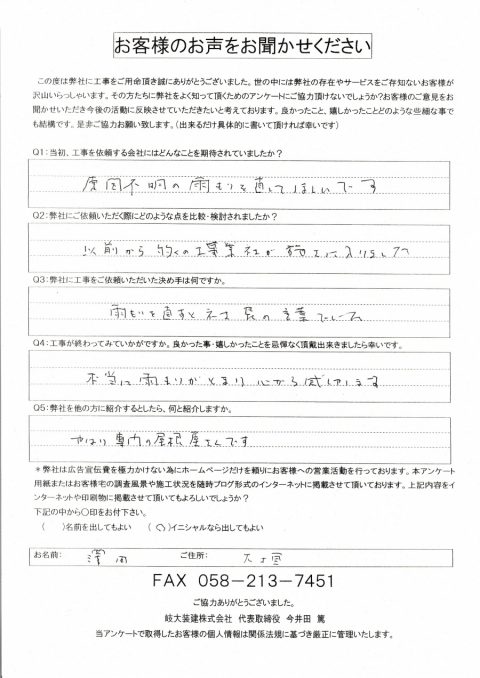 お客様のお声をお聞かせください
この度は弊社に工事をご用命頂き誠にありがとうございました。世の中には弊社の存在やサービスをご存知ないお客様が
沢山いらっしゃいます。その方たちに弊社をよく知って頂くためのアンケートにご協力頂けないでしょうか?お客様のご意見をお
聞かせいただき今後の活動に反映させていただきたいと考えております。良かったこと、嬉しかったことどのような些細な事で
も結構です。是非ご協力お願い致します。(出来るだけ具体的に書いて頂ければ幸いです)
Q1:当初、工事を依頼する会社にはどんなことを期待されていましたか?
原因不明の雨もりを直してほしいです
Q2:弊社にご依頼いただく際にどのような点を比較・検討されましたか?
以前から 多くの工事業社が
Q3:弊社に工事をご依頼いただいた決め手は何ですか。
雨もりを直すと 社長の言葉でした
Q4:工事が終わってみていかがですか。良かった事・嬉しかったことを忌憚なく頂戴出来ましたら幸いです。
本当に雨もりがとまり 心から感謝します
Q5:弊社を他の方に紹介するとしたら、何と紹介しますか。
やはり 専門の屋根屋さんです
*弊社は広告宣伝費を極力かけない為にホームページだけを頼りにお客様への営業活動を行っております。本アンケート
用紙またはお客様宅の調査風景や施工状況を随時ブログ形式のインターネットに掲載させて頂いております。上記内容をイ
ンターネットや印刷物に掲載させて頂いてもよろしいでしょうか?
下記の中から〇印をお付下さい。
( )名前を出してもよい (〇)イニシャルなら出してもよい
お名前: ご住所:
FAX 058-213-7451
ご協力ありがとうございました。
岐大装建株式会社 代表取締役 今井田 篤
当アンケートで取得したお客様の個人情報は関係法規に基づき厳正に管理いたします。